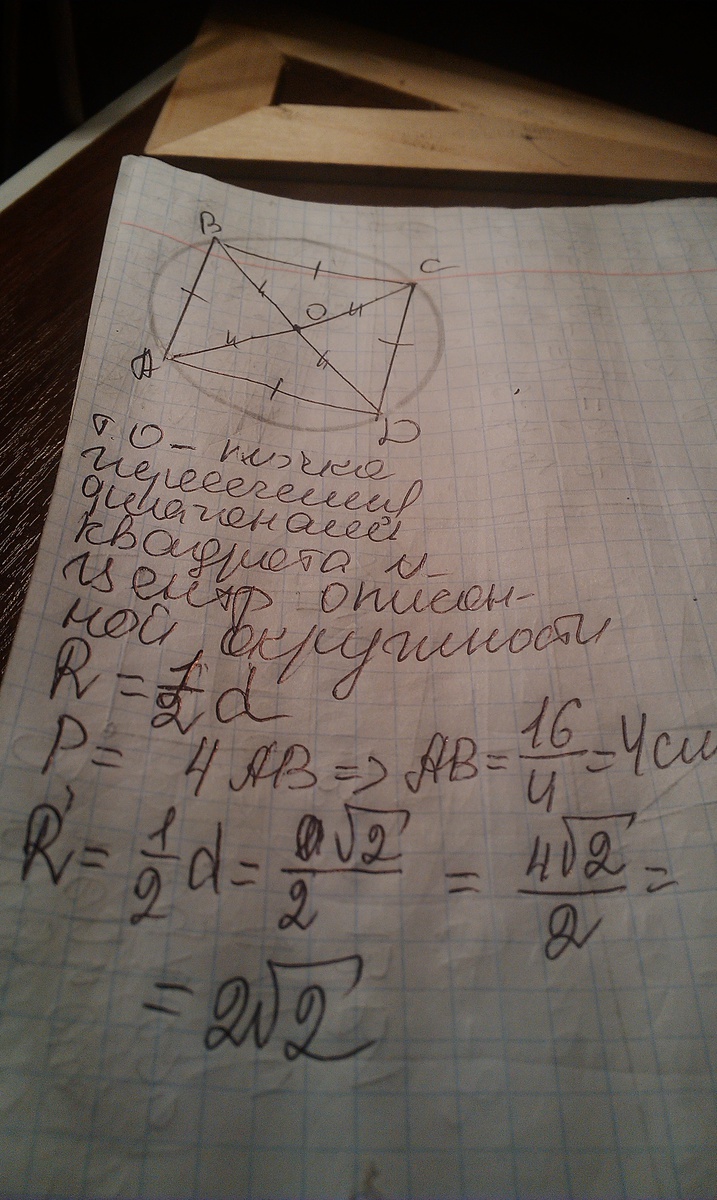 B
C
O
A
D
т. О - точка
пересечения
диагоналей
квадрата и
центр описан-
ной окружности
R = 1/2 d
P = 4 AB => AB = 16/4 = 4 см
R = 1/2 d = a√2/2 = 4√2/2 =
= 2√2